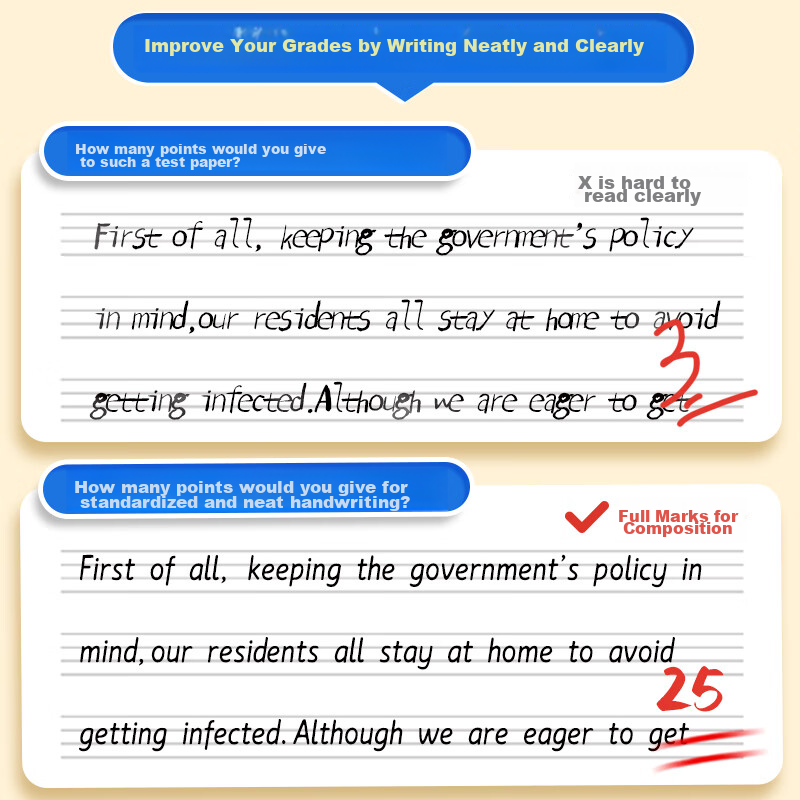 Improve Your Grades by Writing Neatly and Clearly
How many points would you give
to such a test paper?
X is hard to
read clearly
First of all, keeping the government's policy
in mind,our residents all stay at home to avoid
getting infected.Although we are eager to get
3
How many points would you give for
standardized and neat handwriting?
Full Marks for
Composition
First of all, keeping the government's policy in
mind,our residents all stay at home to avoid
25
getting infected. Although we are eager to get